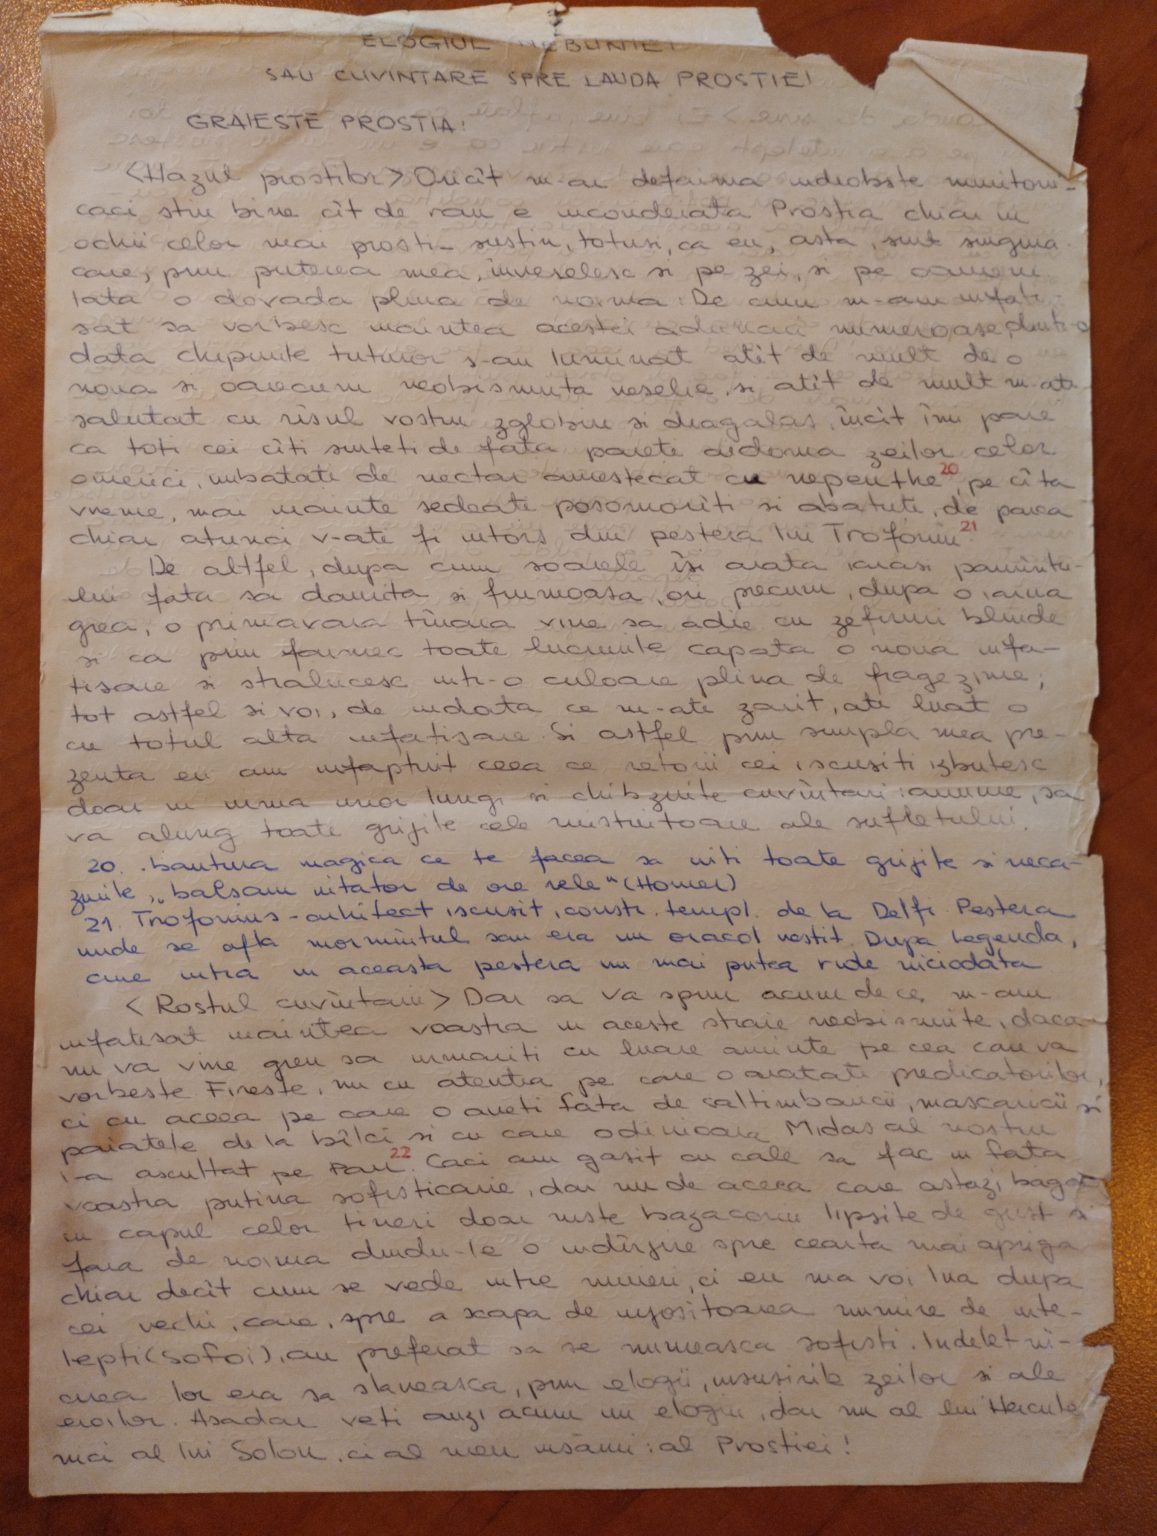 ELOGIUL NEBUNIEI
SAU CUVINTARE SPRE LAUDA PROSTIEI
GRAIESTE PROSTIA!
<Hazul prostilor> Oricît m-ar defaima indeobste muritorii-
caci stiu bine cît de rau e inconderata Prostia chiar in
ochii celor mai prosti- sustin, totusi, ca eu, asta, sint singura
care, prin puterea mea, înveselesc si pe zei, si pe oameni
Iata o dovada plina de noima: De cum m-am infati-
sat sa vorbesc inaintea acestei adunari numeroase, dintr-o
data chipurile tuturor s-au luminat atît de mult de o
noua si oarecum neobisnuita veselie, si atît de mult m-ati
salutat cu rîsul vostru zglobiu si dragalas, încît îmi pare
ca toti cei cîti sunteti de fata parete aidoma zeilor celor
omerici, imbatati de nectar amestecat cu nepenthe 20, pe cîta
vreme, mai inainte sedeate posomorîti si abatuti, de parca
chiar atunci v-ati fi intors din pestera lui Trofoniu 21.
De altfel, dupa cum soarele îsi arata iarasi pamîntu-
lui fata sa daurita si frumoasa, ori precum, dupa o iarna
grea, o primavara tînara vine sa adie cu zefirii blinde
si ca prin farmec toate lucrurile capata o noua infa-
tisare si stralucesc intr-o culoare plina de fragezime;
tot astfel si voi, de indata ce m-ati zarit, ati luat o
cu totul alta infatisare. Si astfel prin simpla mea pre-
zenta eu am infaptuit ceea ce retorii cei iscusiti izbutesc
doar in urma unor lungi si chibzuite cuvîntari: anume, sa
va alung toate grijile cele mistuitoare ale sufletului.
20. bautura magica ce te facea sa uiti toate grijile si neca-
zurile, „balsam uitator de ore rele" (Homer)
21. Trofonius - arhitect iscusit, constr. templ. de la Delfi. Pestera
unde se afla mormîntul sau era un oracol vestit. Dupa legenda,
cine intra in aceasta pestera nu mai putea ride niciodata
<Rostul cuvîntarii> Dar sa va spun acum de ce m-am
infatisat inaintea voastra in aceste straie neobisnuite, daca
nu va vine greu sa urmariti cu luare aminte pe cea care va
vorbeste. Fireste, nu cu atentia pe care o aratati predicatorilor,
ci cu aceea pe care o aveti fata de saltimbancii, mascaricii si
paiatele de la bîlci si cu care odinioara Midas al nostru
l-a ascultat pe Pan 22. Caci am gasit cu cale sa fac in fata
voastra putina sofisticarie, dar nu de aceea care astazi baga
in capul celor tineri doar niste bazaconii lipsite de gust si
fara de noima dindu-le o indîrjire spre cearta mai apriga
chiar decît cum se vede intre muieri, ci eu ma voi lua dupa
cei vechi, care, spre a scapa de injositoarea numire de inte-
lepti (sofoi), au preferat sa se numeasca sofisti. Indeletni-
cirea lor era sa slaveasca, prin elogii, insusirile zeilor si ale
eroilor. Asadar veti auzi acum un elogiu, dar nu al lui Hercule
nici al lui Solon, ci al meu însami: al Prostiei!